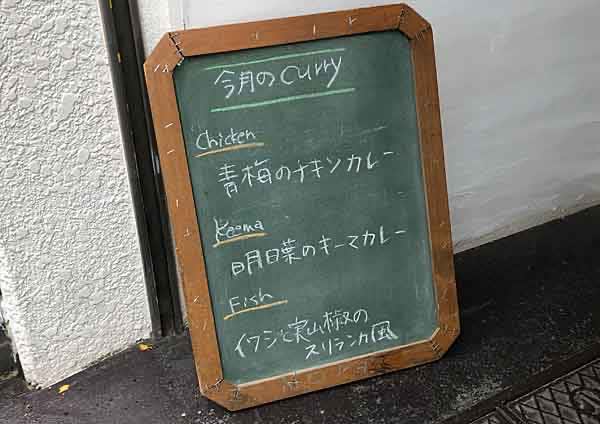 今月のCurry
Chicken
青梅のチキンカレー
Keema
明日葉のキーマカレー
Fish
イワシと実山椒の
スリランカ風